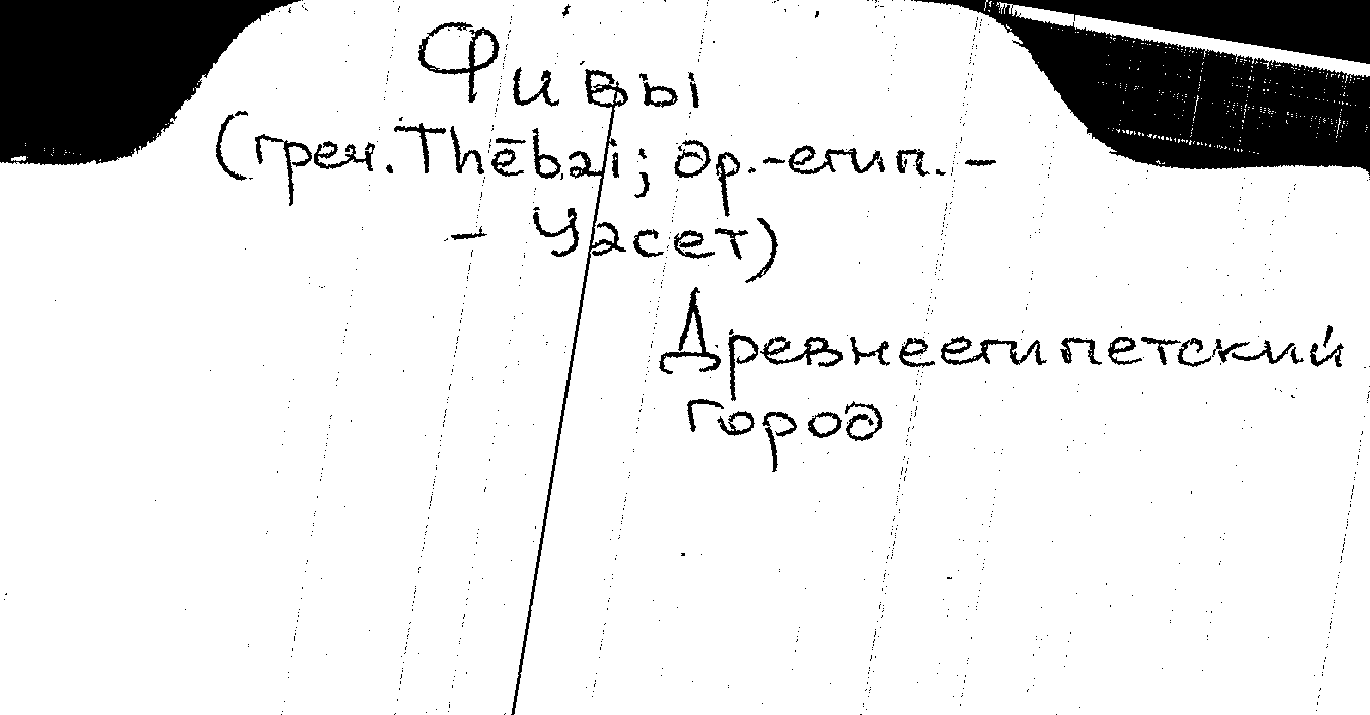 Фивы
(греч. Thēbai; др.-егип. -
- Уасет)
Древнеегипетский
город